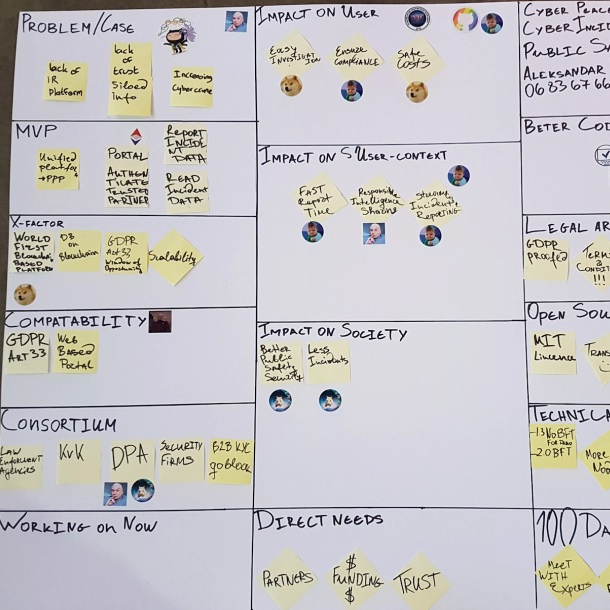 Problem/Case
lack of
IR
Platform
lack
of
trust
Siloed
info
Increasing
Cybercrime
MVP
Unified
platform
→PPP
PORTAL
AUTHEN
TICATE
TRUSTED
PARTNER
REPORT
INCIDE
NT
DATA
READ
Incident
DATA
X-FACTOR
WORLD
FIRST
Blockchain
BASED
PLATFORM
DB
on
Blockchain
GDPR
Art 33
Window of
Opportunity
Scalability
COMPATABILITY
GDPR
ART 33
Web
Based
Portal
CONSORTIUM
LAW
Enforcment
AGENCIES
KvK
DPA
SECURITY
FIRMS
B2B KYC
goBlock
WORKING ON NOW
IMPACT ON USER
Easy
Investigat
ion
Ensure
Compliance
Safe
Costs
IMPACT ON SUSER-CONTEXT
FAST
Report
Time
Responsible
Intelligence
Sharing
Incidents
Reporting
IMPACT ON SOCIETY
Better
Public
Safety
Security
Less
Incidents
DIRECT NEEDS
PARTNERS
$
FUNDING
$
TRUST
CYBER PLAC
CYBER INCID
PUBLIC SA
ALEKSANDAR
06 83 67 66
BETER COD
LEGAL AR
GDPR
PROOFED
TERMS
&
CONDIT
!!!
OPEN SOU
MIT
Liscence
TRANS
TECHNICA
-1.3 NO BFT
-2.0 BFT
MORE
NOD
100 DA
MEET
WITH
EXPERTS